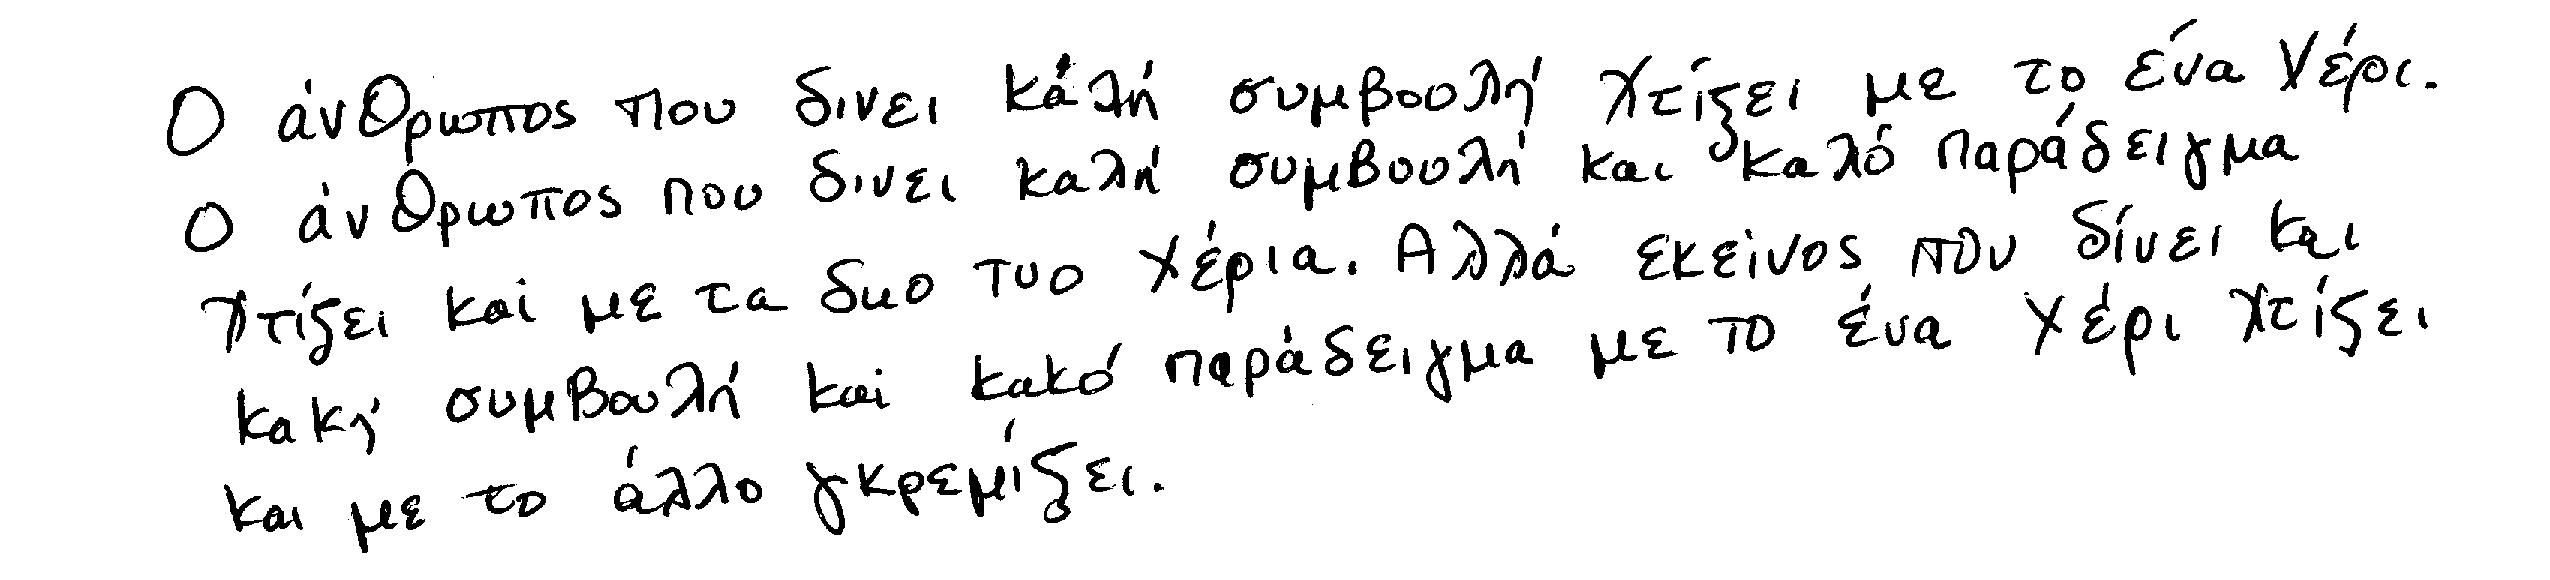 Ο άνθρωπος που δινει κάλή συμβουλή χτίζει με το ένα χέρι.
Ο άνθρωπος που δινει καλή συμβουλή και καλό παράδειγμα
χτίζει καί με τα δυο τυο χέρια. Αλλά εκείνος που δίνει και
κακή συμβουλή καί κακό παράδειγμα με το ένα χέρι χτίζει
και με το άλλο γκρεμίζει.